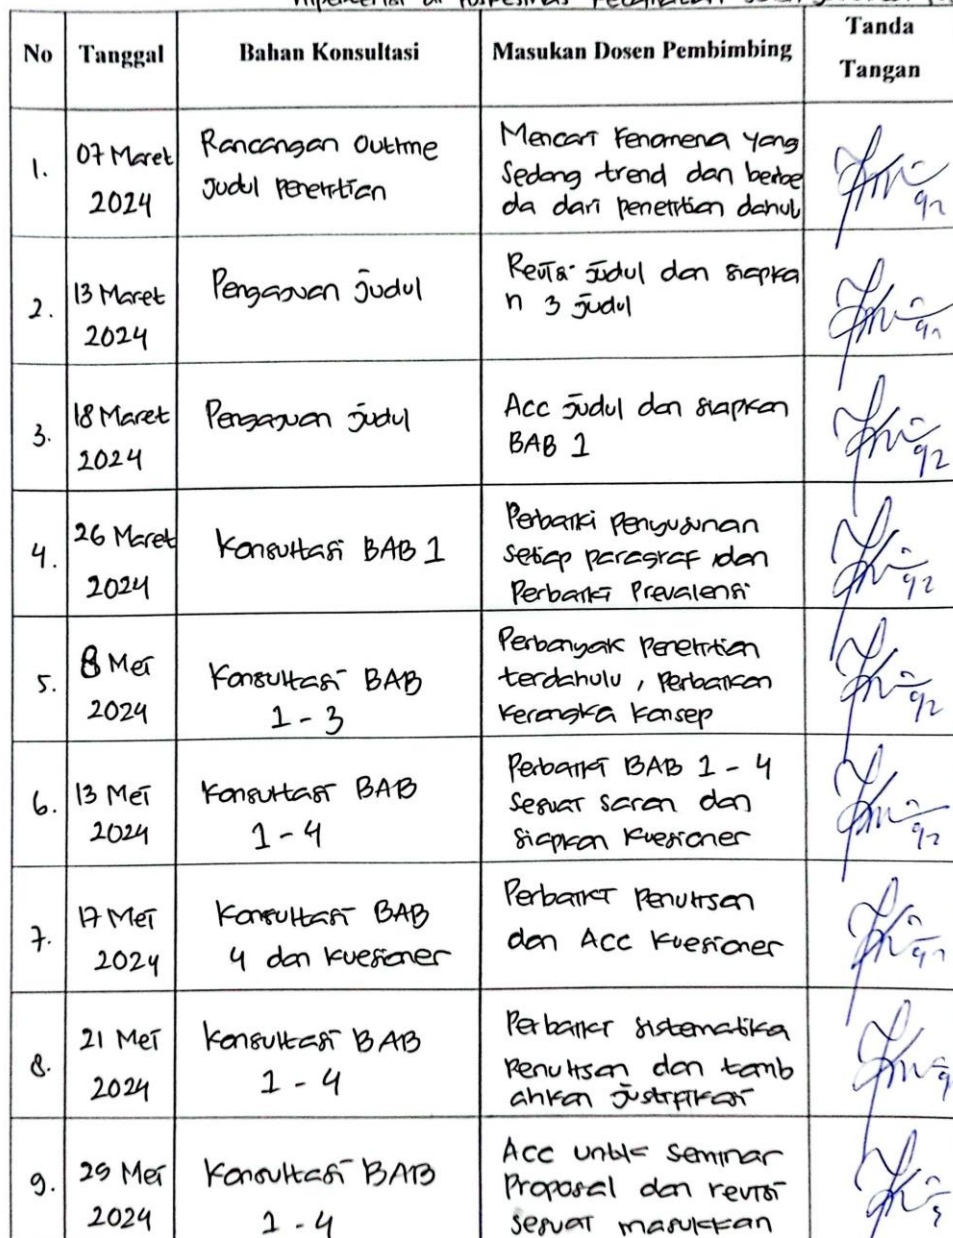 hipertensi di Puskesmas Kecamatan
No Tanggal Bahan Konsultasi Masukan Dosen Pembimbing Tanda Tangan
1. 07 Maret 2024
Rancangan Outline
Judul Penelitian
Mencari Fenomena yang
Sedang trend dan berbe
da dari penelitian dahul
2. 13 Maret 2024
Pengajuan Judul
Revisi Judul dan siapka
n 3 Judul
3. 18 Maret 2024
Pengajuan Judul
Acc Judul dan siapkan
BAB 1
4. 26 Maret 2024
Konsultasi BAB 1
Perbaiki Penyusunan
Setiap paragraf dan
Perbaiki Prevalensi
5. 8 Mei 2024
Konsultasi BAB
1 - 3
Perbanyak Penelitian
terdahulu, Perbaikan
Kerangka Konsep
6. 13 Mei 2024
Konsultasi BAB
1 - 4
Perbaiki BAB 1 - 4
Sesuai saran dan
Siapkan Kuesioner
7. 17 Mei 2024
Konsultasi BAB
4 dan Kuesioner
Perbaiki Penulisan
dan Acc Kuesioner
8. 21 Mei 2024
Konsultasi BAB
1 - 4
Perbaiki sistematika
Penulisan dan tamb
ahkan Justifikasi
9. 29 Mei 2024
Konsultasi BAB
1 - 4
Acc untuk Seminar
Proposal dan revisi
sesuai masukkan